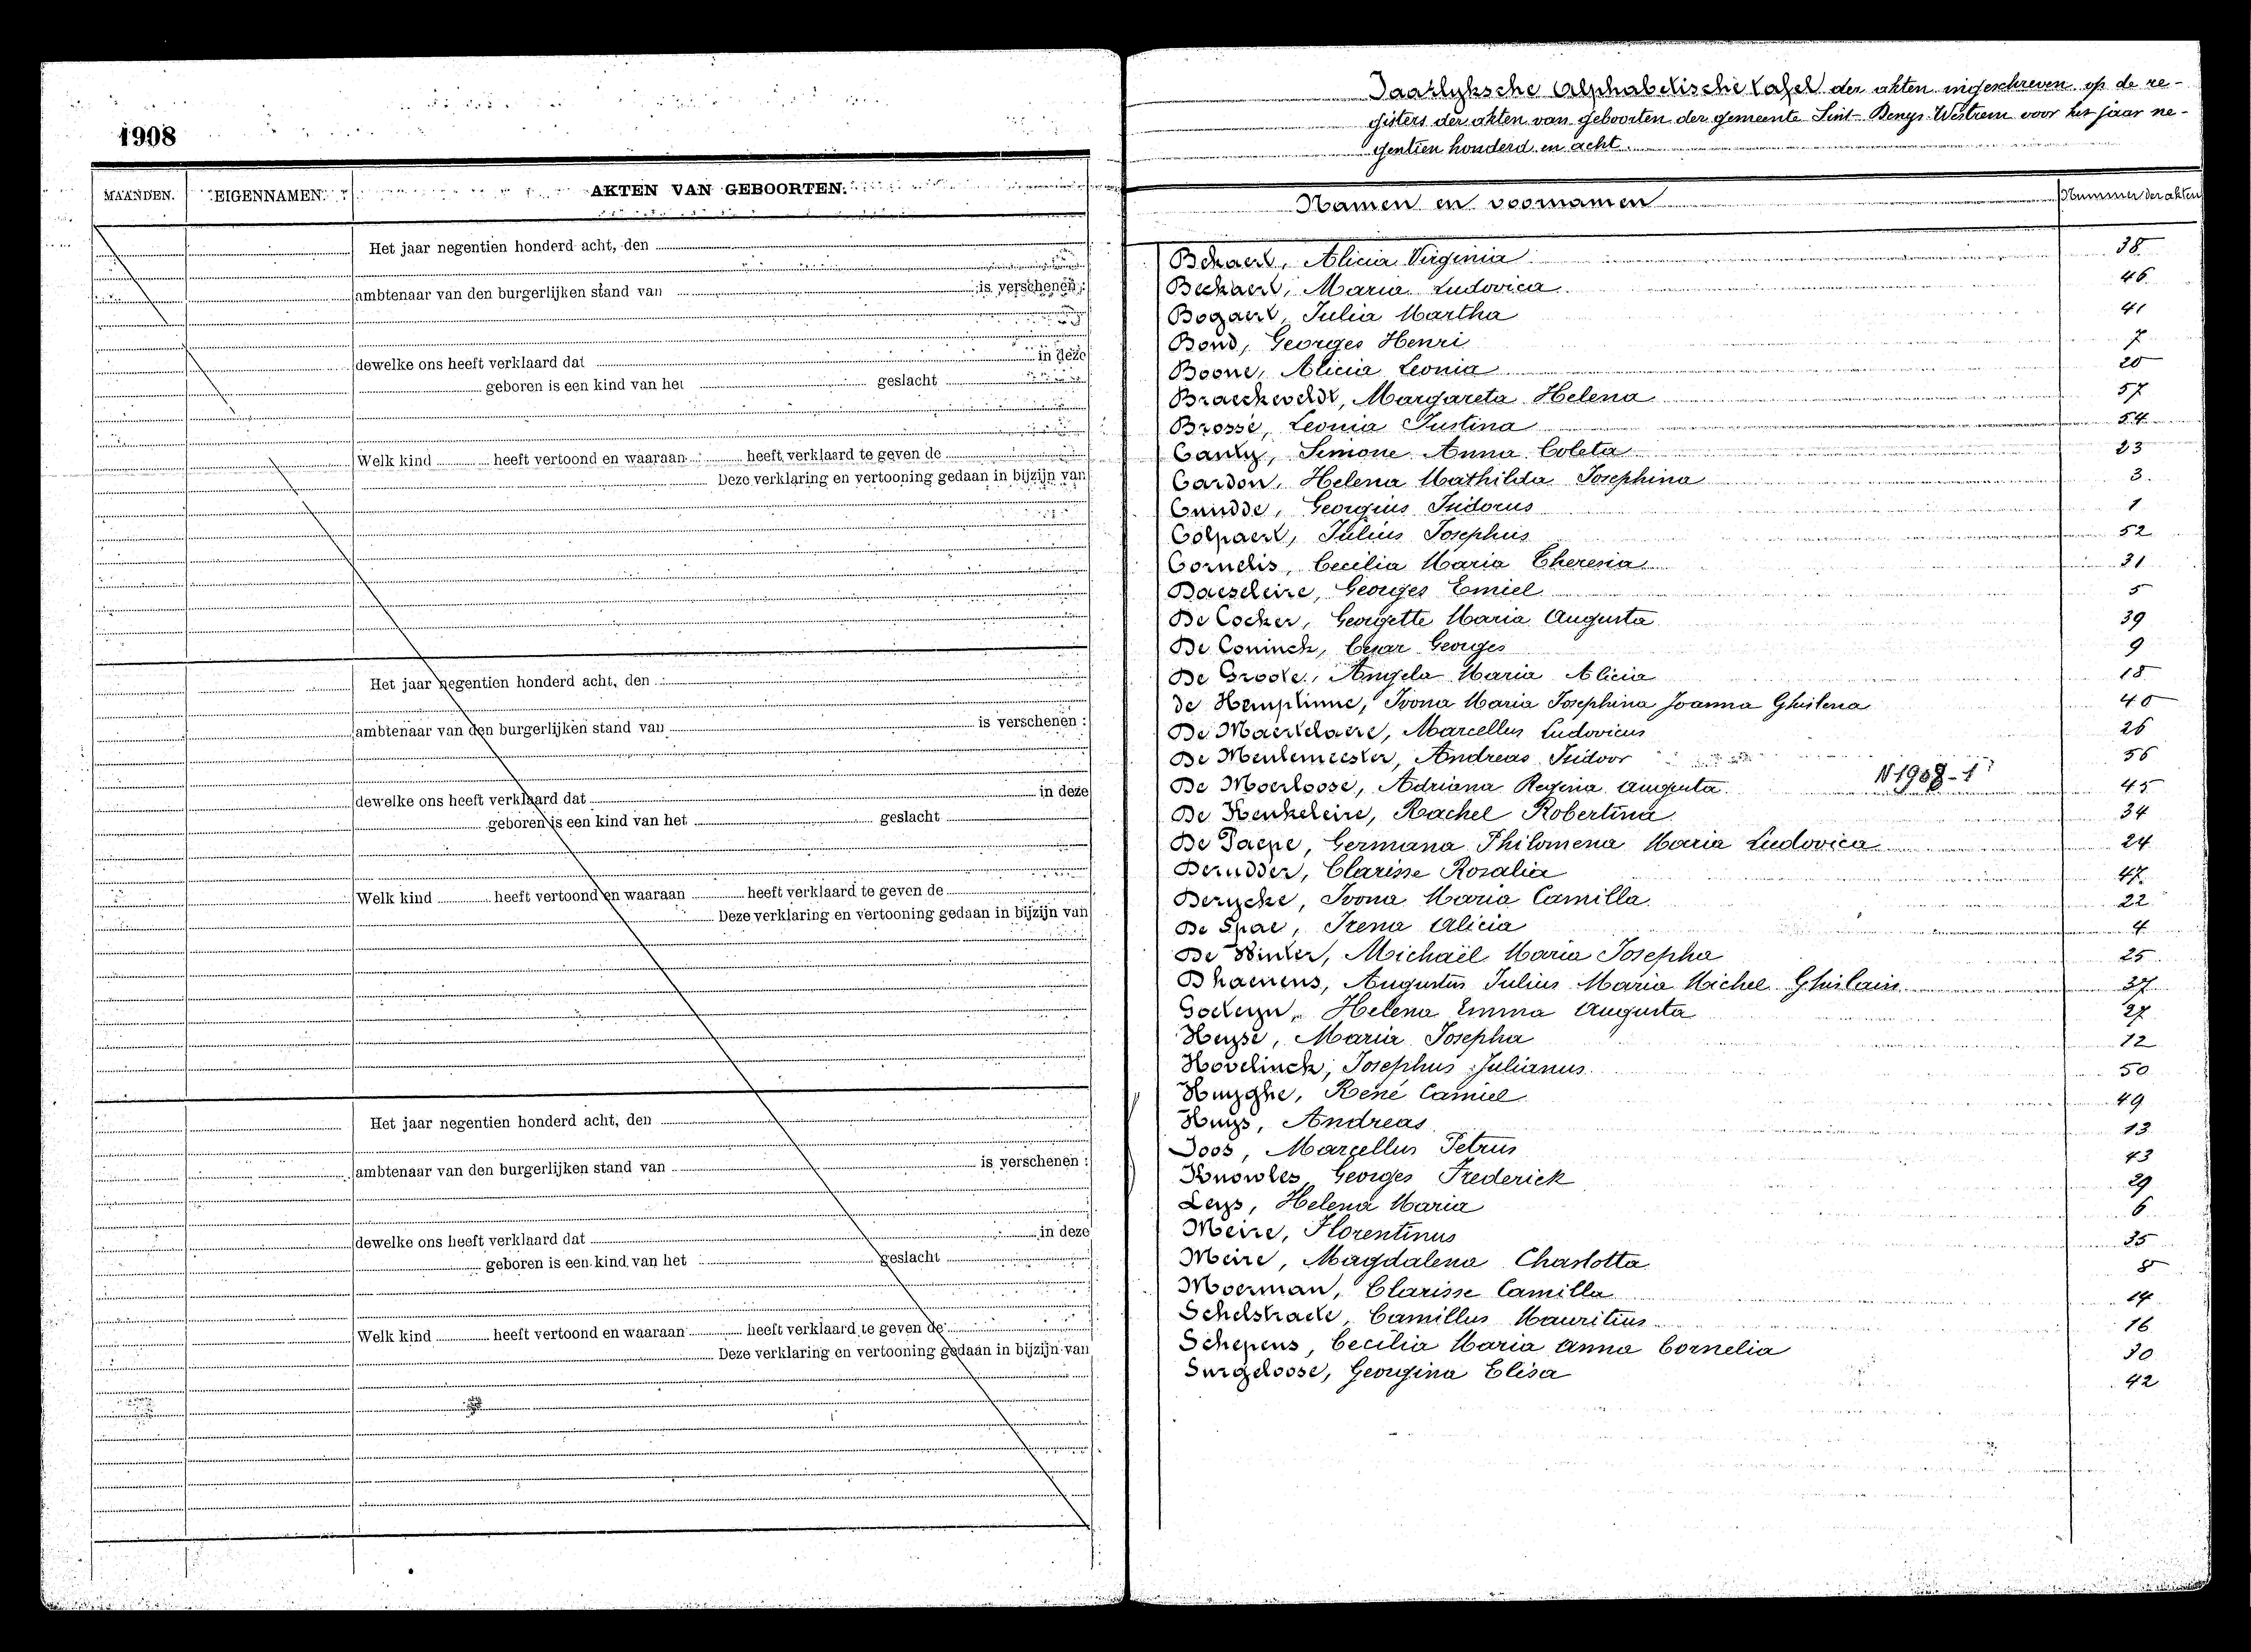 1908
MAANDEN. EIGENNAMEN. AKTEN VAN GEBOORTEN.
Het jaar negentien honderd acht, den
ambtenaar van den burgerlijken stand van is verschenen :
dewelke ons heeft verklaard dat in deze
geboren is een kind van het geslacht
Welk kind heeft vertoond en waaraan heeft verklaard te geven de
Deze verklaring en vertooning gedaan in bijzijn van
Het jaar negentien honderd acht, den
ambtenaar van den burgerlijken stand van is verschenen :
dewelke ons heeft verklaard dat in deze
geboren is een kind van het geslacht
Welk kind heeft vertoond en waaraan heeft verklaard te geven de
Deze verklaring en vertooning gedaan in bijzijn van
Het jaar negentien honderd acht, den
ambtenaar van den burgerlijken stand van is verschenen :
dewelke ons heeft verklaard dat in deze
geboren is een kind van het geslacht
Welk kind heeft vertoond en waaraan heeft verklaard te geven de
Deze verklaring en vertooning gedaan in bijzijn van
Jaarlyksche Alphabetische tafel der akten ingeschreven op de re-
gisters der akten van geboorten der gemeente Sint-Denys-Westrem voor het jaar ne-
gentien honderd en acht.
Namen en voornamen Nummer der akten
Alicia Virginia 38
Beekaert, Maria Ludovica 46
Bogaert, Julia Martha 41
Bond, Georges Henri 7
Boone, Alicia Leonia 20
Braeckeveldt, Margareta Helena 57
Brossé, Leonia Justina 54
Canty, Simone Anna Coleta 23
Cardon, Helena Mathilda Josephina 3
Cnudde, Georgius Isidorus 1
Colpaert, Julius Josephus 52
Cornelis, Cecilia Maria Theresia 31
Daeseleire, Georges Emiel 5
De Cocker, Georgette Maria Augusta 39
De Coninck, Cesar Georges 9
De Groote, Angela Maria Alicia 18
de Hemptinne, Ivona Maria Josephina Joanna Ghislena 40
De Maertelaere, Marcellus Ludovicus 26
De Meulemeester, Andreas Isidoor 56
De Moerloose, Adriana Regina Augusta N1908-1 45
De Keukeleire, Rachel Robertina 34
De Paepe, Germana Philomena Maria Ludovica 24
Derudder, Clarisse Rosalia 47
Derycke, Ivona Maria Camilla 22
De Spae, Irena Alicia 4
De Winter, Michaël Maria Josepha 25
Dhaenens, Augustus Julius Maria Michel Ghislain 37
Goeteyn, Helena Emma Augusta 27
Heyse, Maria Josepha 12
Hovelinck, Josephus Julianus 50
Huyghe, René Camiel 49
Huys, Andreas 13
Joos, Marcellus Petrus 43
Knowles, Georges Frederick 29
Leys, Helena Maria 6
Meire, Florentinus 35
Meire, Magdalena Charlotta 8
Moerman, Clarisse Camilla 14
Schelstraete, Camillus Mauritius 16
Schepens, Cecilia Maria Anna Cornelia 30
Surgeloose, Georgina Elisa 42